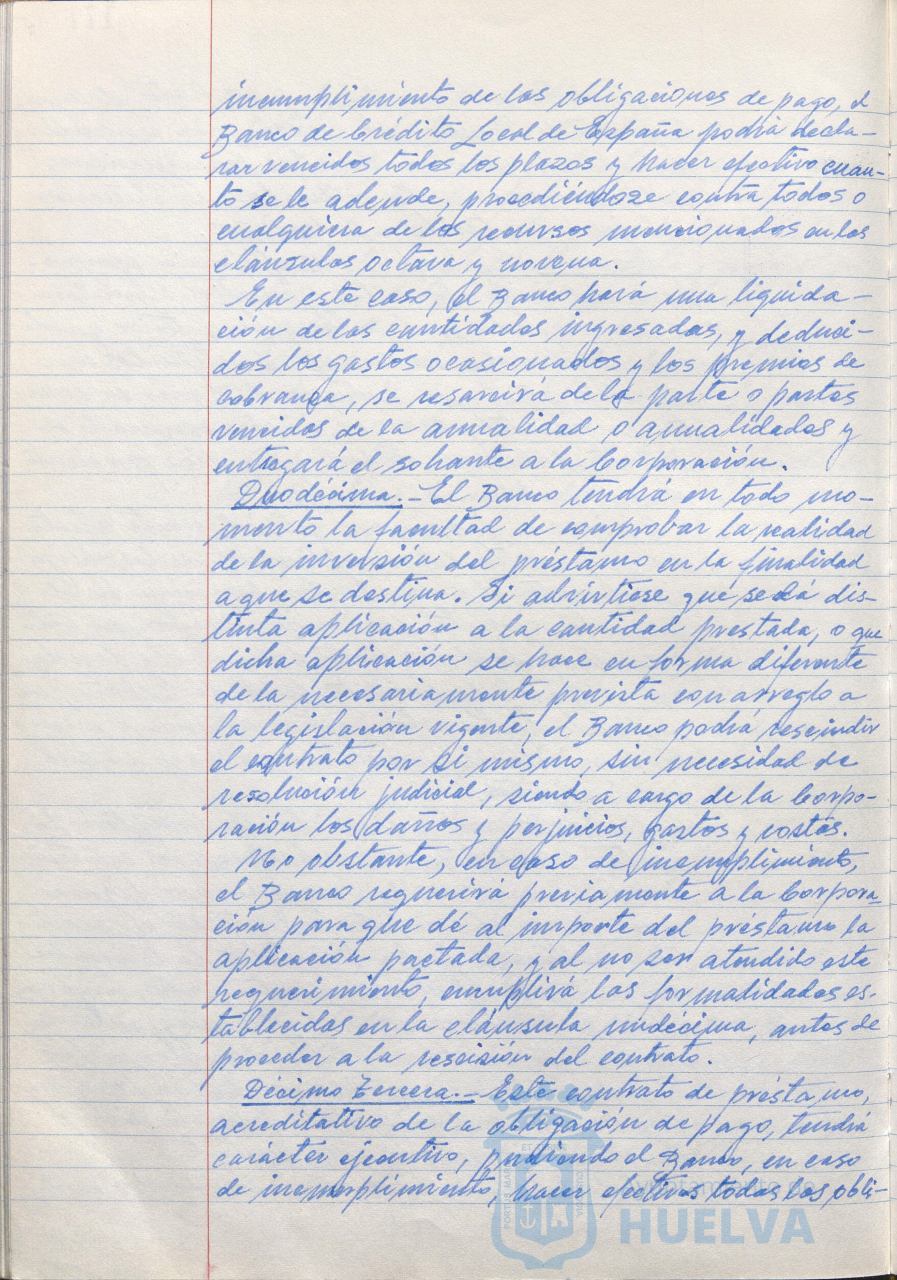 incumplimiento de las obligaciones de pago, el
Banco de Crédito Local de España podrá decla-
rar vencidos todos los plazos y hacer efectivo cuan-
to se le adeude, procediéndose contra todos o
cualquiera de los recursos mencionados en las
cláusulas octava y novena.
En este caso, el Banco hará una liquida-
ción de las cantidades ingresadas, y deduci-
dos los gastos ocasionados y los premios de
cobranza, se resarcirá de la parte o partes
vencidas de la anualidad o anualidades y
entregará el sobrante a la Corporación.
Duodécima.- El Banco tendrá en todo mo-
mento la facultad de comprobar la realidad
de la inversión del préstamo en la finalidad
a que se destina. Si advirtiese que se dá dis-
tinta aplicación a la cantidad prestada, o que
dicha aplicación se hace en forma diferente
de la necesariamente prevista con arreglo a
la legislación vigente, el Banco podrá rescindir
el contrato por si mismo, sin necesidad de
resolución judicial, siendo a cargo de la Corpo-
ración los daños y perjuicios, gastos y costas.
No obstante, en caso de incumplimiento,
el Banco requerirá previamente a la Corpora-
ción para que dé al importe del préstamo la
aplicación pactada, y al no ser atendido este
requerimiento, cumplirá las formalidades es-
tablecidas en la cláusula undécima, antes de
proceder a la rescisión del contrato.
Décimo Tercera.- Este contrato de préstamo,
acreditativo de la obligación de pago, tendrá
carácter ejecutivo, pudiendo el Banco, en caso
de incumplimiento, hacer efectivas todas las obli-
Ayuntamiento de
HUELVA